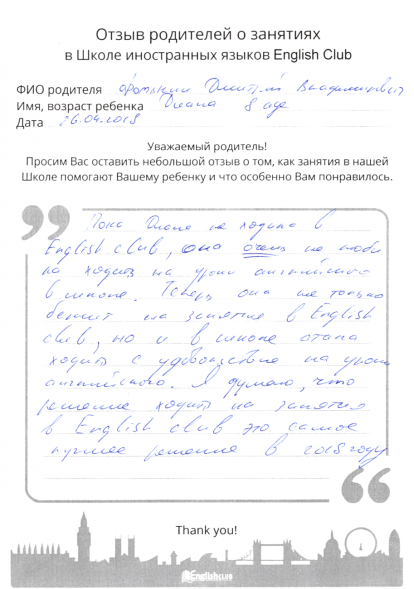 Отзыв родителей о занятиях
в Школе иностранных языков English Club
ФИО родителя Дмитрий Владимирович
Имя, возраст ребенка Диана 8
Дата 26.04.2018
Уважаемый родитель!
Просим Вас оставить небольшой отзыв о том, как занятия в нашей
Школе помогают Вашему ребенку и что особенно Вам понравилось.
Пока Диана не ходила в
English club, она очень не люби
ла ходить на уроки английского
в школе. Теперь она не только
бежит на занятие в English
club, но и в школе стала
ходить с удовольствие на уроки
английского. Я думаю, что
решение ходить на занятия
в English club это самое
лучшее решение в 2018 году
Thank you!
English club